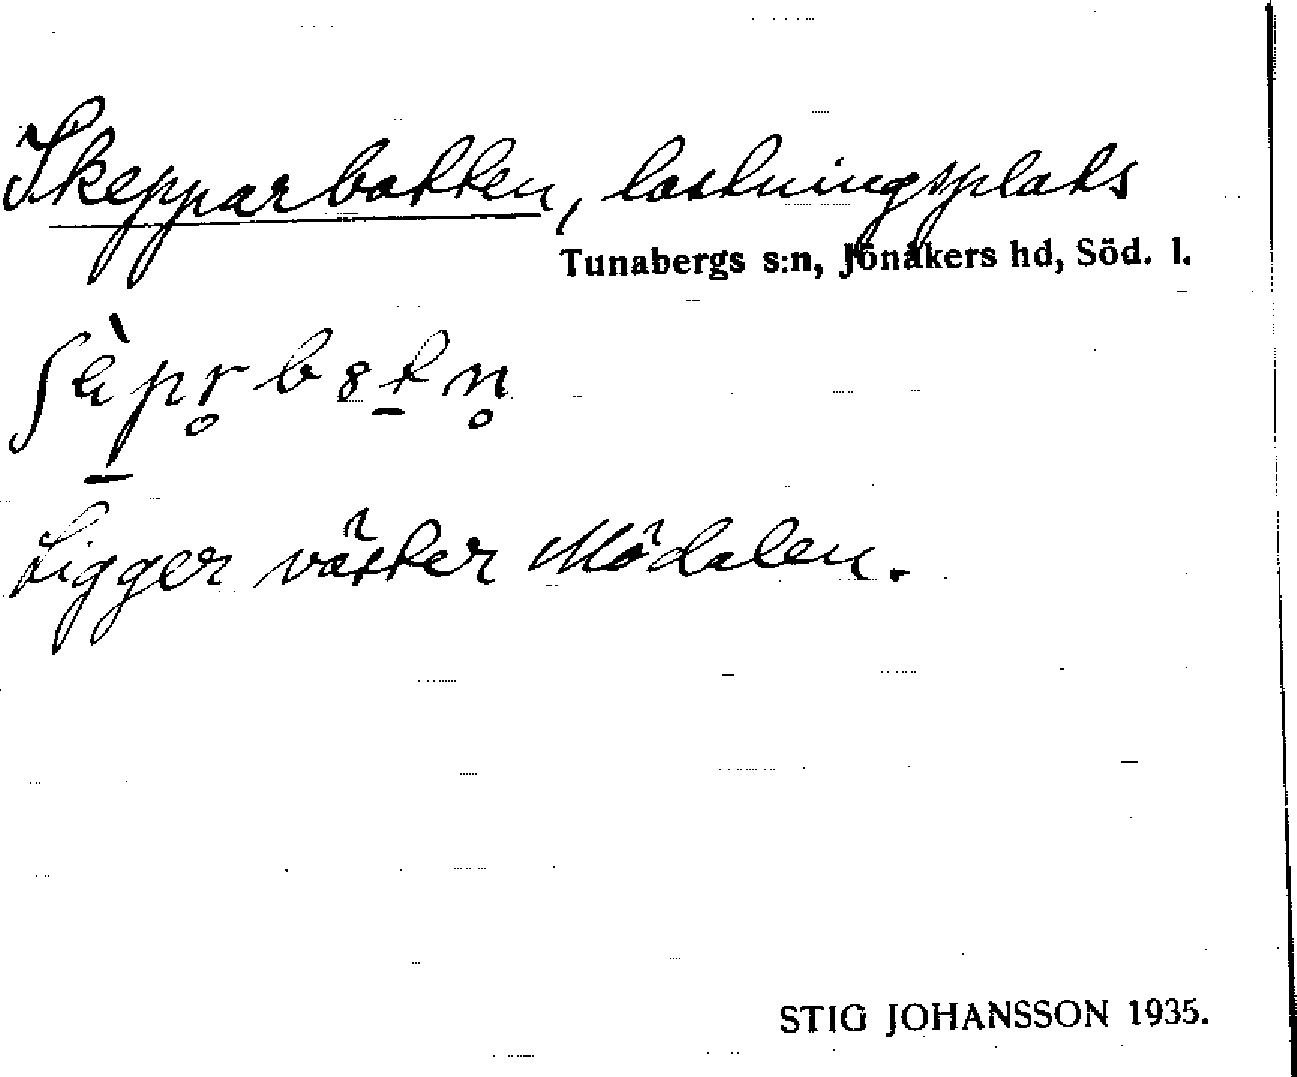 Skepparbotten, lastningsplats
Tunabergs s:n, Jönåkers hd, Söd. l.
ʃɛ̀p̲r̥b8t̲n̥
Ligger väster Mödalen.
STIG JOHANSSON 1935.